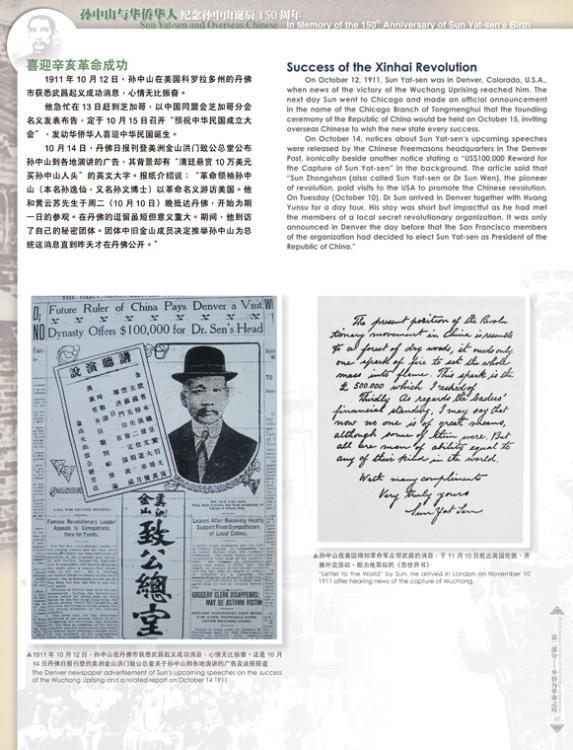 孙中山与华侨华人 纪念孙中山诞辰 150 周年
Sun Yat-sen and Overseas Chinese In Memory of the 150th Anniversary of Sun Yat-sen's Birth
喜迎辛亥革命成功
1911 年 10 月 12 日，孙中山在美国科罗拉多州的丹佛
市获悉武昌起义成功消息，心情无比振奋。
他急忙在 13 日赶到芝加哥，以中国同盟会芝加哥分会
名义发表布告，定于 10 月 15 日召开“预祝中华民国成立大
会”，发动华侨华人喜迎中华民国诞生。
10 月 14 日，丹佛日报刊登美洲金山洪门致公总堂公布
孙中山到各地演讲的广告，其背景却有“清廷悬赏 10 万美元
买孙中山人头”的英文大字。报纸介绍说：“革命领袖孙中
山（本名孙逸仙，又名孙文博士）以革命名义游访美国。他
和黄云苏先生于周二（10 月 10 日）晚抵达丹佛，开始为期
一日的参观。在丹佛的逗留虽短但意义重大。期间，他到访
了自己的秘密团体。团体中旧金山成员决定推举孙中山为总
统这消息直到昨天才在丹佛公开。”
Success of the Xinhai Revolution
On October 12, 1911, Sun Yat-sen was in Denver, Colorado, U.S.A.,
when news of the victory of the Wuchang Uprising reached him. The
next day Sun went to Chicago and made an official announcement
in the name of the Chicago Branch of Tongmenghui that the founding
ceremony of the Republic of China would be held on October 15, inviting
overseas Chinese to wish the new state every success.
On October 14, notices about Sun Yat-sen's upcoming speeches
were released by the Chinese Freemasons headquarters in The Denver
Post, ironically beside another notice stating a "US$100,000 Reward for
the Capture of Sun Yat-sen" in the background. The article said that
"Sun Zhongshan (also called Sun Yat-sen or Dr Sun Wen), the pioneer
of revolution, paid visits to the USA to promote the Chinese revolution.
On Tuesday (October 10), Dr Sun arrived in Denver together with Huang
Yunsu for a day tour. His stay was short but impactful as he had met
the members of a local secret revolutionary organization. It was only
announced in Denver the day before that the San Francisco members
of the organization had decided to elect Sun Yat-sen as President of the
Republic of China."
Future Ruler of China Pays Denver a Visit
Dynasty Offers $100,000 for Dr. Sen's Head
説演聽請
Famous Revolutionary Leader
Appeals to Compatriots
Here for Funds.
Leaves After Receiving Hearty
Support From Sympathizers
of Local Colony.
GROCERY CLERK DISAPPEARS;
MAY BE ASTHMA VICTIM
金山
致公總堂
The present position of the Revolu
tionary movement in China is resemble
to a forest of dry woods, it needs only
one spark of fire to set the whole
mass into flame. This spark is the
£ 500.000 which I asked of
Thirdly As regards the leaders'
financial standing, I may say that
now no one is of great means,
although some of them were. But
all are men of ability equal to
any of their kind in the world.
With many compliments
Very truly yours
Sun Yat Sen
▲孙中山在美国得知革命军占领武昌的消息，于 11 月 10 日抵达英国伦敦，开
展外交活动。图为他草拟的《告世界书》
"Letter to the World" by Sun. He arrived in London on November 10
1911 after hearing news of the capture of Wuchang.
▲1911 年 10 月 12 日，孙中山在丹佛市获悉武昌起义成功消息，心情无比振奋。这是 10 月
14 日丹佛日报刊登的美洲金山洪门致公总堂关于孙中山到各地演讲的广告及该报报道
The Denver newspaper advertisement of Sun's upcoming speeches on the success
of the Wuchang Uprising and a related report on October 14 1911